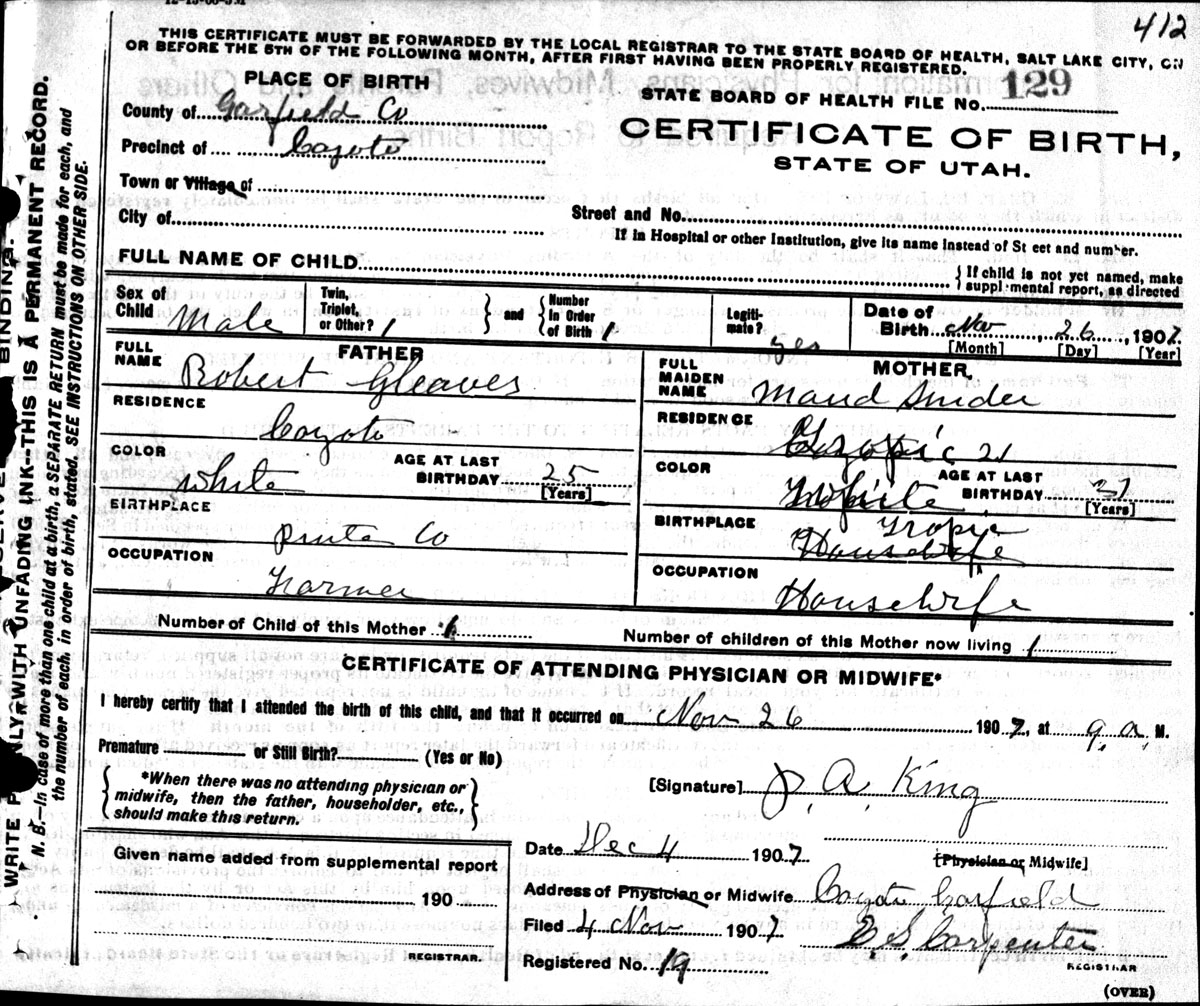 412
THIS CERTIFICATE MUST BE FORWARDED BY THE LOCAL REGISTRAR TO THE STATE BOARD OF HEALTH, SALT LAKE CITY, ON
OR BEFORE THE 5TH OF THE FOLLOWING MONTH, AFTER FIRST HAVING BEEN PROPERLY REGISTERED.
PLACE OF BIRTH
STATE BOARD OF HEALTH FILE NO. 129
County of Garfield Co
CERTIFICATE OF BIRTH,
STATE OF UTAH.
Precinct of Coyoto
Town or Village of
City of
Street and No.
If in Hospital or other Institution, give its name instead of St eet and number.
FULL NAME OF CHILD
{ If child is not yet named, make
suppl mental report, as directed
Sex of Child Male
Twin, Triplet, or Other? 1
} and {
Number in Order of Birth 1
Legiti-mate? yes
Date of Birth Nov 26, 1907
[Month] [Day] [Year]
FATHER
FULL NAME Robert Gleaves
RESIDENCE
Coyoto
COLOR White
AGE AT LAST BIRTHDAY 25
[Years]
BIRTHPLACE
Piute Co
OCCUPATION
Farmer
MOTHER
FULL MAIDEN NAME Maud Snider
RESIDENCE
COLOR White
AGE AT LAST BIRTHDAY
[Years]
BIRTHPLACE Tropic
Housewife
OCCUPATION
Housewife
Number of Child of this Mother 1
Number of children of this Mother now living 1
CERTIFICATE OF ATTENDING PHYSICIAN OR MIDWIFE*
I hereby certify that I attended the birth of this child, and that it occurred on Nov 26 1907, at 9. a. M.
Premature or Still Birth? (Yes or No)
{ *When there was no attending physician or
midwife, then the father, householder, etc.,
should make this return. }
[Signature] J. A. King
[Physician or Midwife]
Date Dec 4 1907
Given name added from supplemental report
190
REGISTRAR.
Address of Physician or Midwife Coyoto Garfield
Filed 4 Nov 1907
Carpenter
REGISTRAR
Registered No. 19
(OVER)
WRITE PLAINLY WITH UNFADING INK—THIS IS A PERMANENT RECORD.
N. B.—In case of more than one child at a birth, a SEPARATE RETURN must be made for each, and
the number of each, in order of birth, stated. SEE INSTRUCTIONS ON OTHER SIDE.
BINDING.